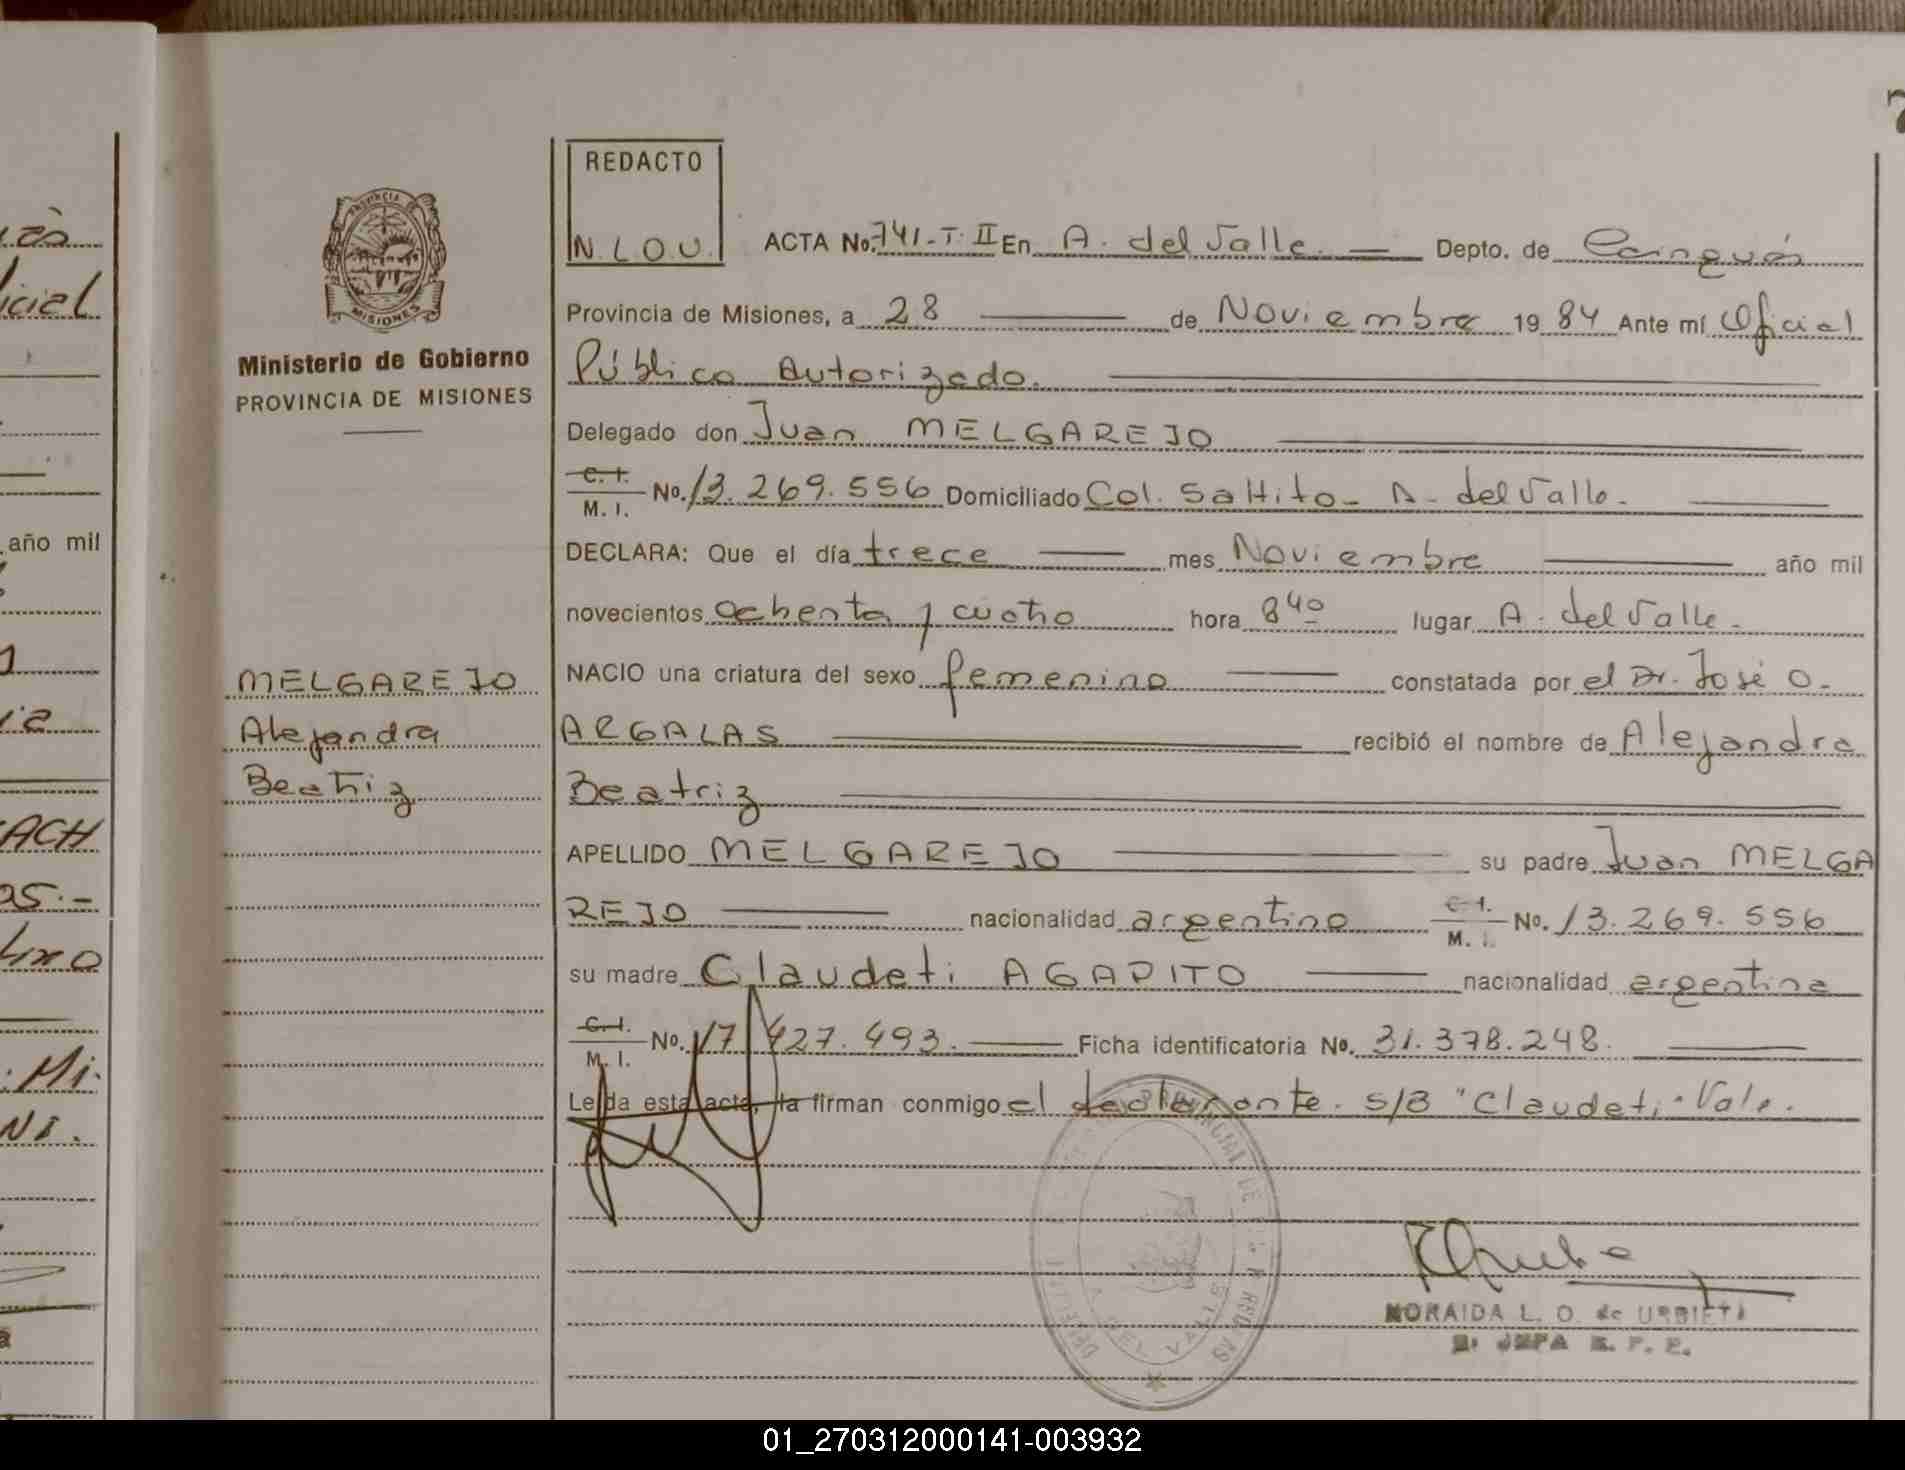 7
REDACTO
N.L.O.U.
ACTA No. 741-T. II En A. del Valle Depto. de Cainguás
Provincia de Misiones, a 28 de Noviembre 1984 Ante mí Oficial
Público Autorizado.
Delegado don Juan MELGAREJO
C. I. M. I. No. 13.269.556 Domiciliado Col. Saltito - A. del Valle.
DECLARA: Que el día trece mes Noviembre año mil
novecientos ochenta y cuatro hora 8 40 lugar A. del Valle.
NACIO una criatura del sexo femenino constatada por el Dr. José O.
ARGALAS recibió el nombre de Alejandra
Beatriz
APELLIDO MELGAREJO su padre Juan MELGA
REJO nacionalidad argentino C. I. M. I. No. 13.269.556
su madre Claudeti AGAPITO nacionalidad argentina
C. I. M. I. No. 17.427.493. Ficha identificatoria No. 31.378.248.
Leída esta acta, la firman conmigo el declarante. S/B "Claudeti" Vale.
NORAIDA L. O. de URBIETA
PROVINCIA DE
MISIONES
Ministerio de Gobierno
PROVINCIA DE MISIONES
MELGAREJO
Alejandra
Beatriz
año mil
01_270312000141-003932